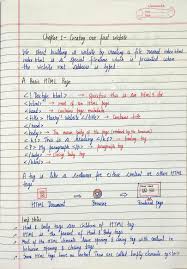 Chapter 1 - Creating our first website
We start building a website by creating a file named index.html
index.html is a special filename which is presented when the
website root address is typed
A Basic HTML Page
<!Doctype html> → Specifies this is an html5 doc
<html> → root of an html page
<head> → Contains page metadata
<title> Harry's website </title>
</head>
<body> → The main body of the page (rendered by the browser)
<h1> This is a heading </h1> → heading tag
<p> My paragraph </p> → paragraph tag
</body> → Closing body tag
</html>
A tag is like a container for either content or other HTML
tags
HTML Document
Browser
Rendered Page
Important Notes
Head & body tags are children of HTML tag
HTML is the parent of Head & Body tags
Most of the HTML elements have opening & closing tag with content in
between opening & closing tags
Some HTML tags have no content. These are called Empty elements